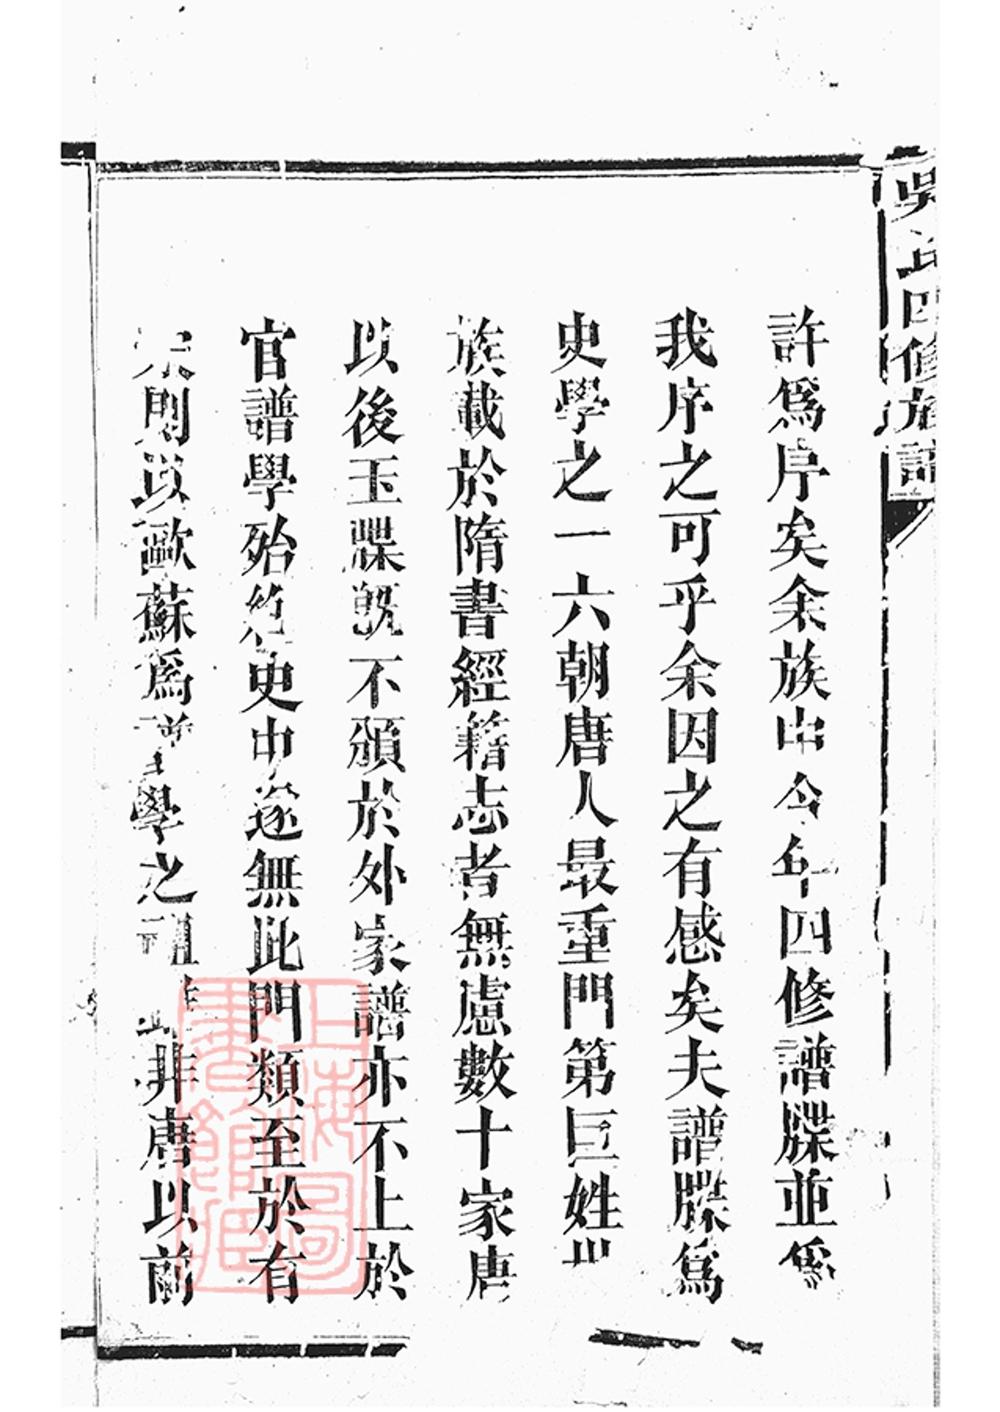 吳氏四修族譜
許爲序矣余族中今年四修譜牒並係
我序之可乎余因之有感矣夫譜牒爲
史學之一六朝唐人最重門第巨姓世
族載於隋書經籍志者無慮數十家唐
以後玉牒既不頒於外家譜亦不上於
官譜學殆絕史中遂無此門類至於有
宋則以歐蘇爲譜學之祖非唐以前
上海圖書館藏